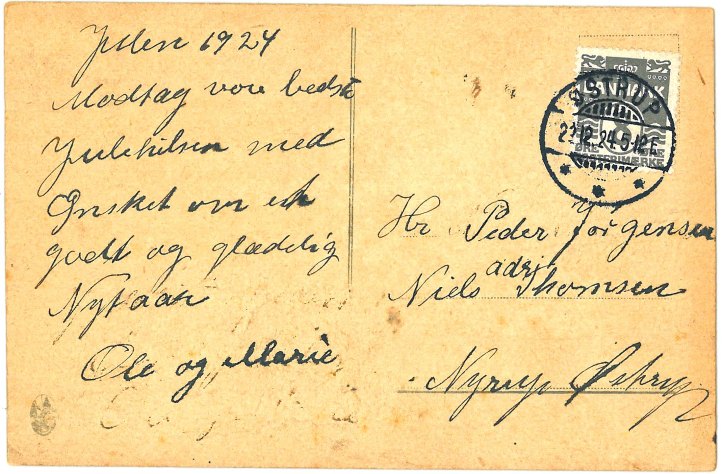 Julen 1924
Modtag vore bedste
Julehilsen med
Ønsket om et
godt og glædelig
Nytaar
Ole og Marie
ØSTRUP
22.12.24.5-12E
ØRE
Hr Peder Jørgensen
adr.
Niels Thomsen
Nyrup Østrup